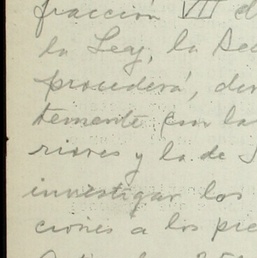 fracción VII d
la Ley, la Sec
procederá, di
temente con la
riores y la de
investigar los
ciones a los pre